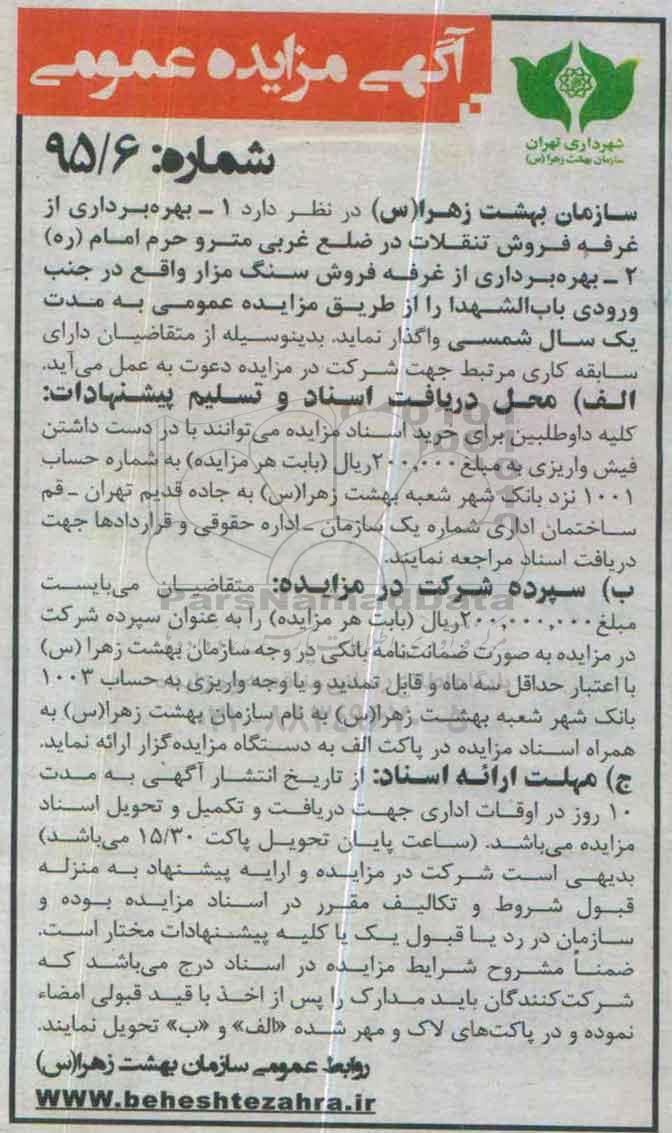 آگهی مزایده عمومی
شهرداری تهران
سازمان بهشت زهرا (س)
شماره: ۹۵/۶
سازمان بهشت زهرا(س) در نظر دارد ۱ ـ بهره‌برداری از
غرفه فروش تنقلات در ضلع غربی مترو حرم امام (ره)
۲ ـ بهره‌برداری از غرفه فروش سنگ مزار واقع در جنب
ورودی باب‌الشهدا را از طریق مزایده عمومی به مدت
یک سال شمسی واگذار نماید. بدینوسیله از متقاضیان دارای
سابقه کاری مرتبط جهت شرکت در مزایده دعوت به عمل می‌آید.
الف) محل دریافت اسناد و تسلیم پیشنهادات:
کلیه داوطلبین برای خرید اسناد مزایده می‌توانند با در دست داشتن
فیش واریزی به مبلغ ۲۰۰,۰۰۰ریال (بابت هر مزایده) به شماره حساب
۱۰۰۱ نزد بانک شهر شعبه بهشت زهرا(س) به جاده قدیم تهران ـ قم
ساختمان اداری شماره یک سازمان ـ اداره حقوقی و قراردادها جهت
دریافت اسناد مراجعه نمایند.
ب) سپرده شرکت در مزایده: متقاضیان می‌بایست
ParsNamadData
مبلغ ۲۰۰,۰۰۰,۰۰۰ریال (بابت هر مزایده) را به عنوان سپرده شرکت
در مزایده به صورت ضمانت‌نامه بانکی در وجه سازمان بهشت زهرا (س)
با اعتبار حداقل سه ماه و قابل تمدید و یا وجه واریزی به حساب ۱۰۰۳
بانک شهر شعبه بهشت زهرا(س) به نام سازمان بهشت زهرا(س) به
همراه اسناد مزایده در پاکت الف به دستگاه مزایده‌گزار ارائه نماید.
ج) مهلت ارائه اسناد: از تاریخ انتشار آگهی به مدت
۱۰ روز در اوقات اداری جهت دریافت و تکمیل و تحویل اسناد
مزایده می‌باشد. (ساعت پایان تحویل پاکت ۱۵/۳۰ می‌باشد)
بدیهی است شرکت در مزایده و ارایه پیشنهاد به منزله
قبول شروط و تکالیف مقرر در اسناد مزایده بوده و
سازمان در رد یا قبول یک یا کلیه پیشنهادات مختار است.
ضمناً مشروح شرایط مزایده در اسناد درج می‌باشد که
شرکت‌کنندگان باید مدارک را پس از اخذ با قید قبولی امضاء
نموده و در پاکت‌های لاک و مهر شده «الف» و «ب» تحویل نمایند.
روابط عمومی سازمان بهشت زهرا(س)
WWW.beheshtezahra.ir